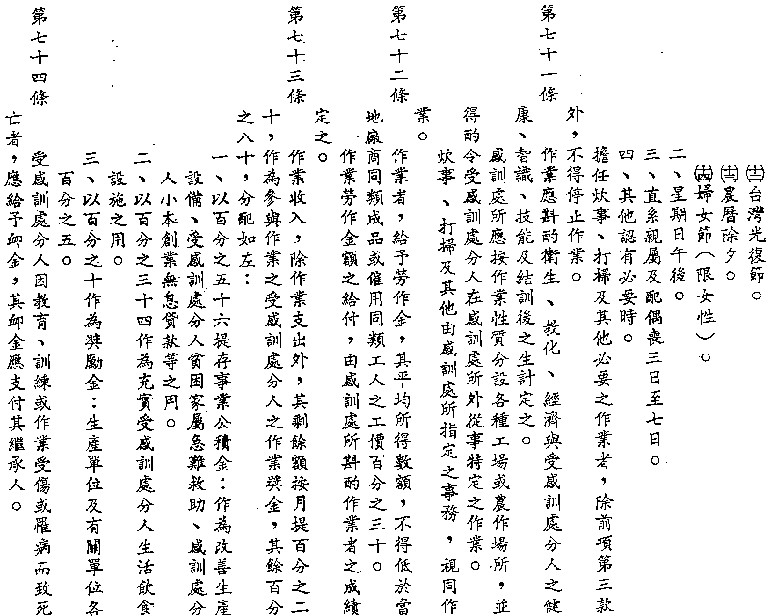 台灣光復節。
農曆除夕。
婦女節(限女性)。
二、星期日午後。
三、直系親屬及配偶喪三日至七日。
四、其他認有必要時。
擔任炊事、打掃及其他必要之作業者,除前項第三款
外,不得停止作業。
第七十一條 作業應斟酌衛生、教化、經濟與受感訓處分人之健
康、智識、技能及結訓後之生計定之。
感訓處所應按作業性質分設各種工場或農作場所,並
得酌令受感訓處分人在感訓處所外從事特定之作業。
炊事、打掃及其他由感訓處所指定之事務,視同作
業。
第七十二條 作業者,給予勞作金,其平均所得數額,不得低於當
地廠商同類成品或僱用同類工人之工價百分之三十。
作業勞作金額之給付,由感訓處所斟酌作業者之成績
定之。
第七十三條 作業收入,除作業支出外,其剩餘額按月提百分之二
十,作為參與作業之受感訓處分人之作業獎金,其餘百分
之八十,分配如左:
一、以百分之五十六提存事業公積金:作為改善生產
設備、受感訓處分人貧困家屬急難救助、感訓處分
人小本創業無息貸款等之用。
二、以百分之三十四作為充實受感訓處分人生活飲食
設施之用。
三、以百分之十作為獎勵金:生產單位及有關單位各
百分之五。
第七十四條 受感訓處分人因教育、訓練或作業受傷或罹病而致死
亡者,應給予卹金,其卹金應支付其繼承人。